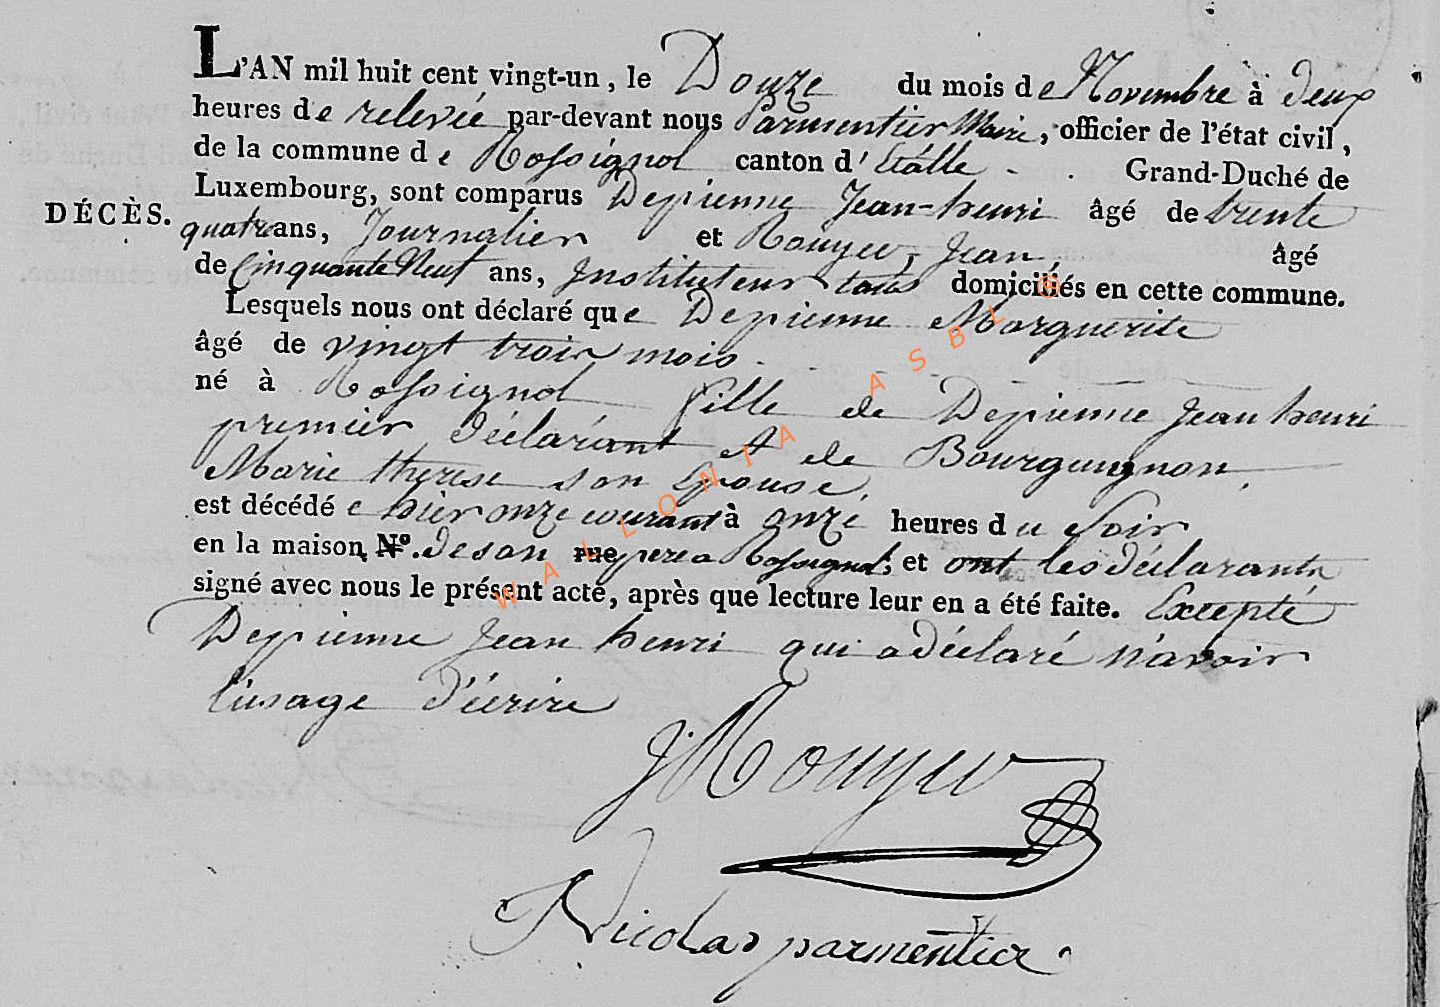 L'AN mil huit cent vingt-un, le Douze du mois de Novembre à deux
heures de relevée par-devant nous Parmentier Maire, officier de l'état civil,
de la commune de Rossignol canton d'Etalle. Grand-Duché de
Luxembourg, sont comparus Depienne Jean-henri âgé de trente
DÉCÈS. quatre ans, Journalier et Rouyer, Jean, âgé
de Cinquante Neuf ans, Instituteur tous domiciliés en cette commune.
Lesquels nous ont déclaré que Depienne Marguerite
âgé de vingt trois mois
né à Rossignol fille de Depienne Jean henri
premier déclarant et de Bourguignon
Marie therese son Epouse,
est décédée hier onze courant à onze heures du Soir
en la maison, N°. de son rue pere a Rossignol; et ont les déclarants
signé avec nous le présent acte, après que lecture leur en a été faite. Excepté
Depienne Jean henri qui a déclaré n'avoir
l'usage d'écrire
J: Rouyer
Nicolas parmentier
WALLONIA ASBL ©